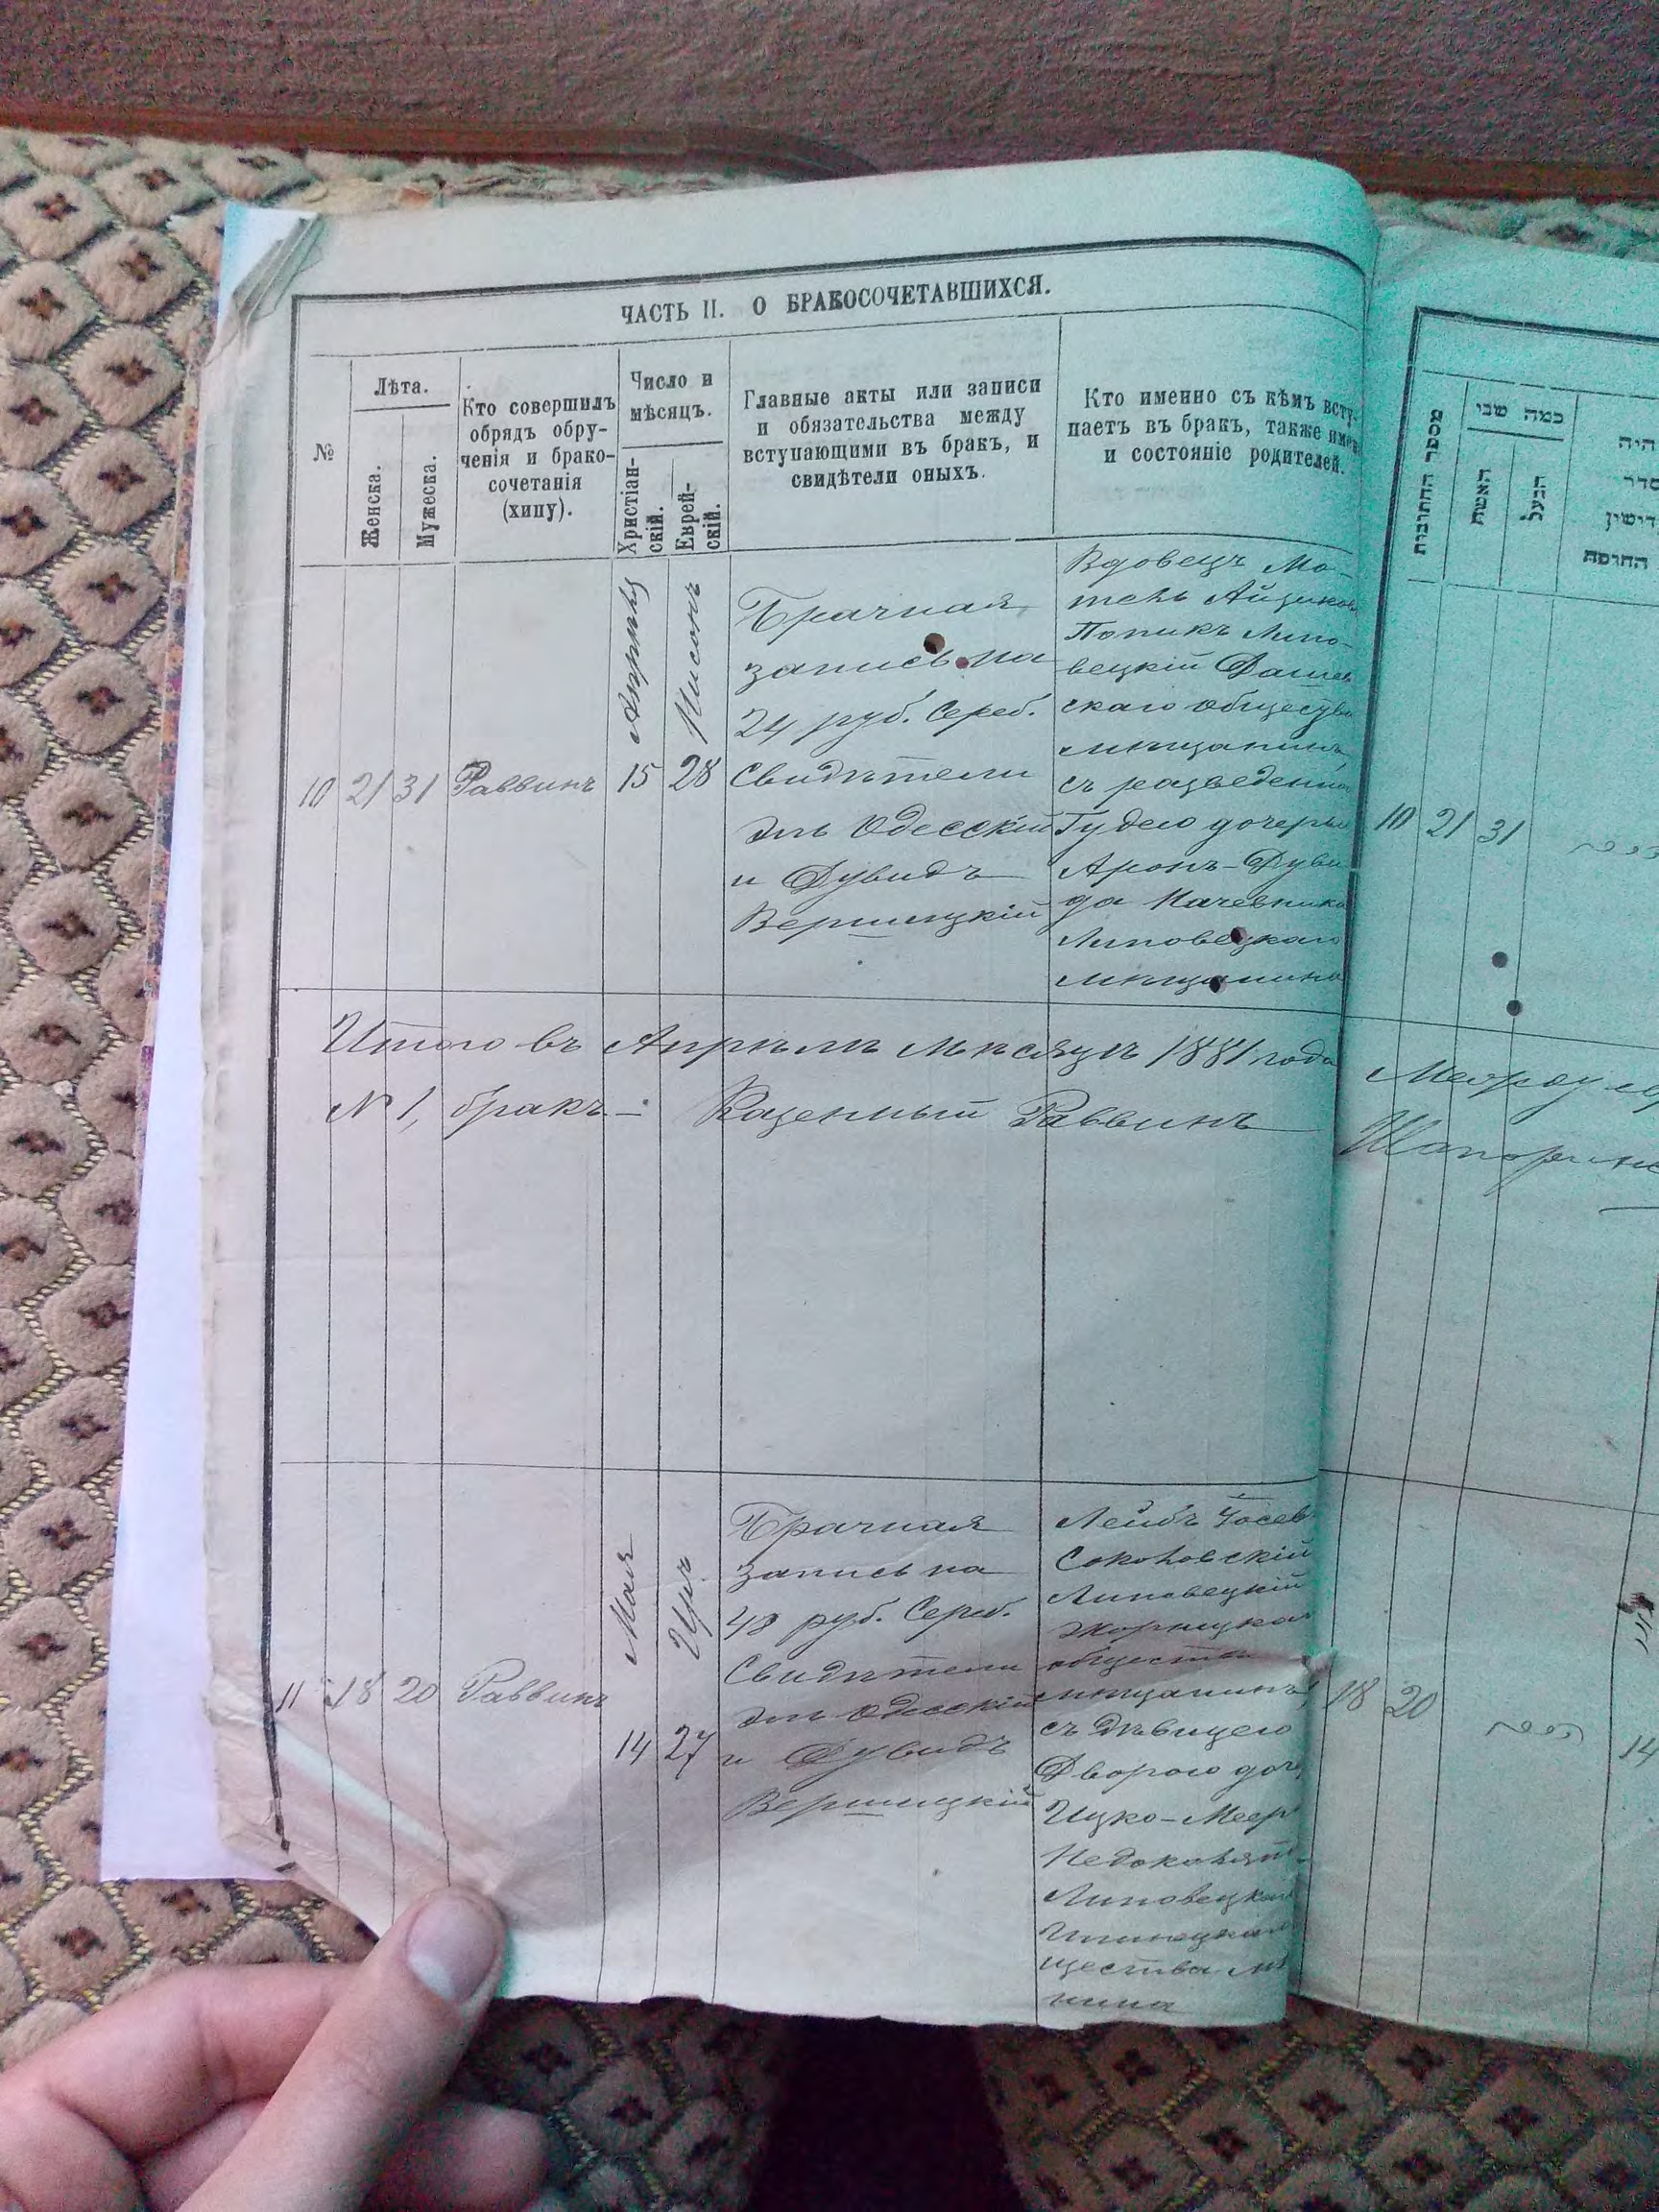 ЧАСТЬ II. О БРАКОСОЧЕТАВШИХСЯ.
№
Лѣта.
Женска.
Мужеска.
Кто совершилъ
обрядъ обру-
ченія и брако-
сочетанія
(хипу).
Число и
мѣсяцъ.
Христіан-
скій.
Еврей-
скій.
Главные акты или записи
и обязательства между
вступающими въ бракъ, и
свидѣтели оныхъ.
Кто именно съ кѣмъ всту-
паетъ въ бракъ, также имя
и состояніе родителей.
10
21
31
Раввинъ
Апрѣля
15
Нисонъ
28
Брачная
запись на
24 руб. Сереб.
Свидѣтели
Эль Одесскій
и Дувидъ
Вершицкій
Вдовецъ Мо-
тель Айзиковъ
Попикъ Липо-
вецкій Дашев
скаго общества
мѣщанинъ,
съ разведенною
Гудею дочерью
Аронъ-Дуви
да
Липовецкаго
мѣщанина
Итого въ Апрѣлѣ мѣсяцѣ 1881 года
№ 1, бракъ — Казенный Раввинъ
11
18
20
Раввинъ
Мая
14
Иръ
27
Брачная
запись на
48 руб. Сереб.
Свидѣтели
Эль Одесскій
и Дувидъ
Вершицкій
Лейбъ Іосев
Соколовскій
Липовецкій
общества
мѣщанинъ,
съ дѣвицею
Дворою доче
Ицко-Меер
Липовецкаго
щества мѣ
нина
מספר החתונות
כמה שני
האשה
הבעל
היה
סדר
החופה
10
21
31
18
20
14